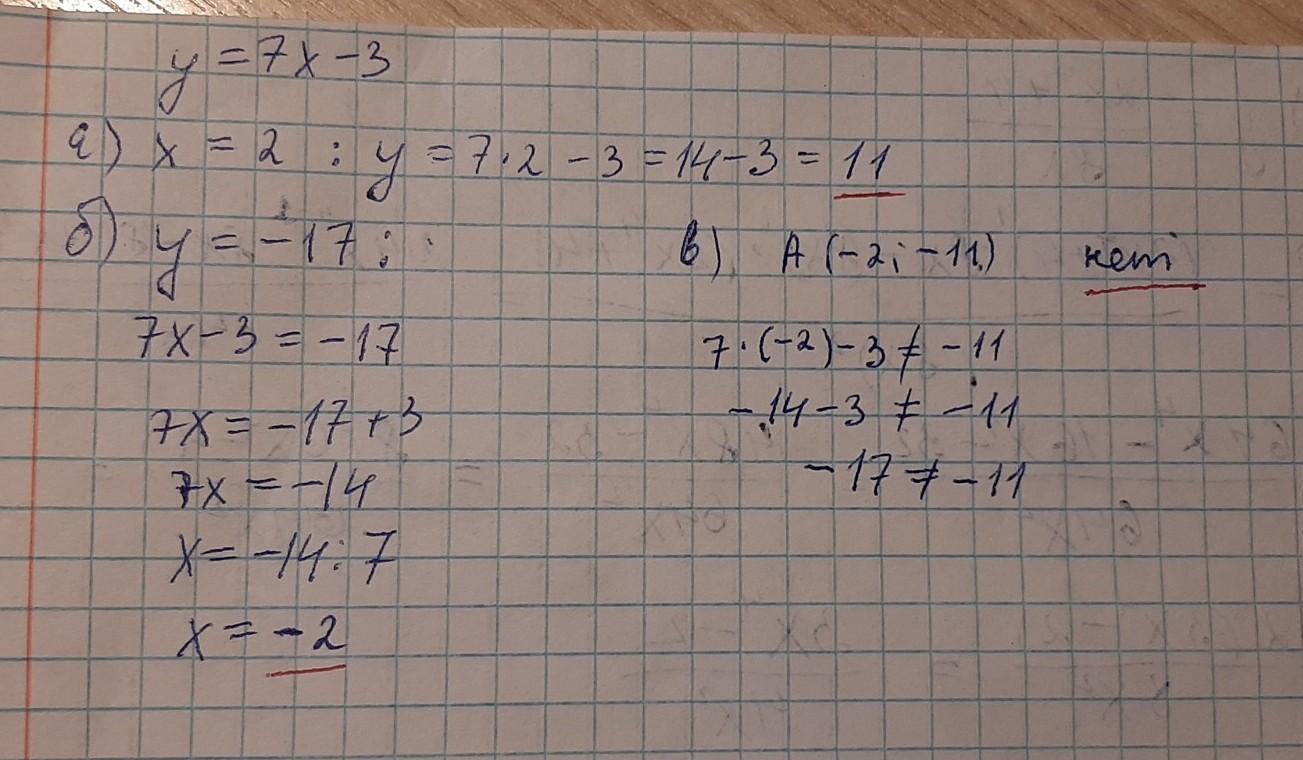 y = 7x - 3
а) x = 2 : y = 7·2 - 3 = 14 - 3 = 11
б) y = -17 :
7x - 3 = -17
7x = -17 + 3
7x = -14
x = -14 : 7
x = -2
в) A (-2; -11) нет
7·(-2) - 3 ≠ -11
-14 - 3 ≠ -11
-17 ≠ -11